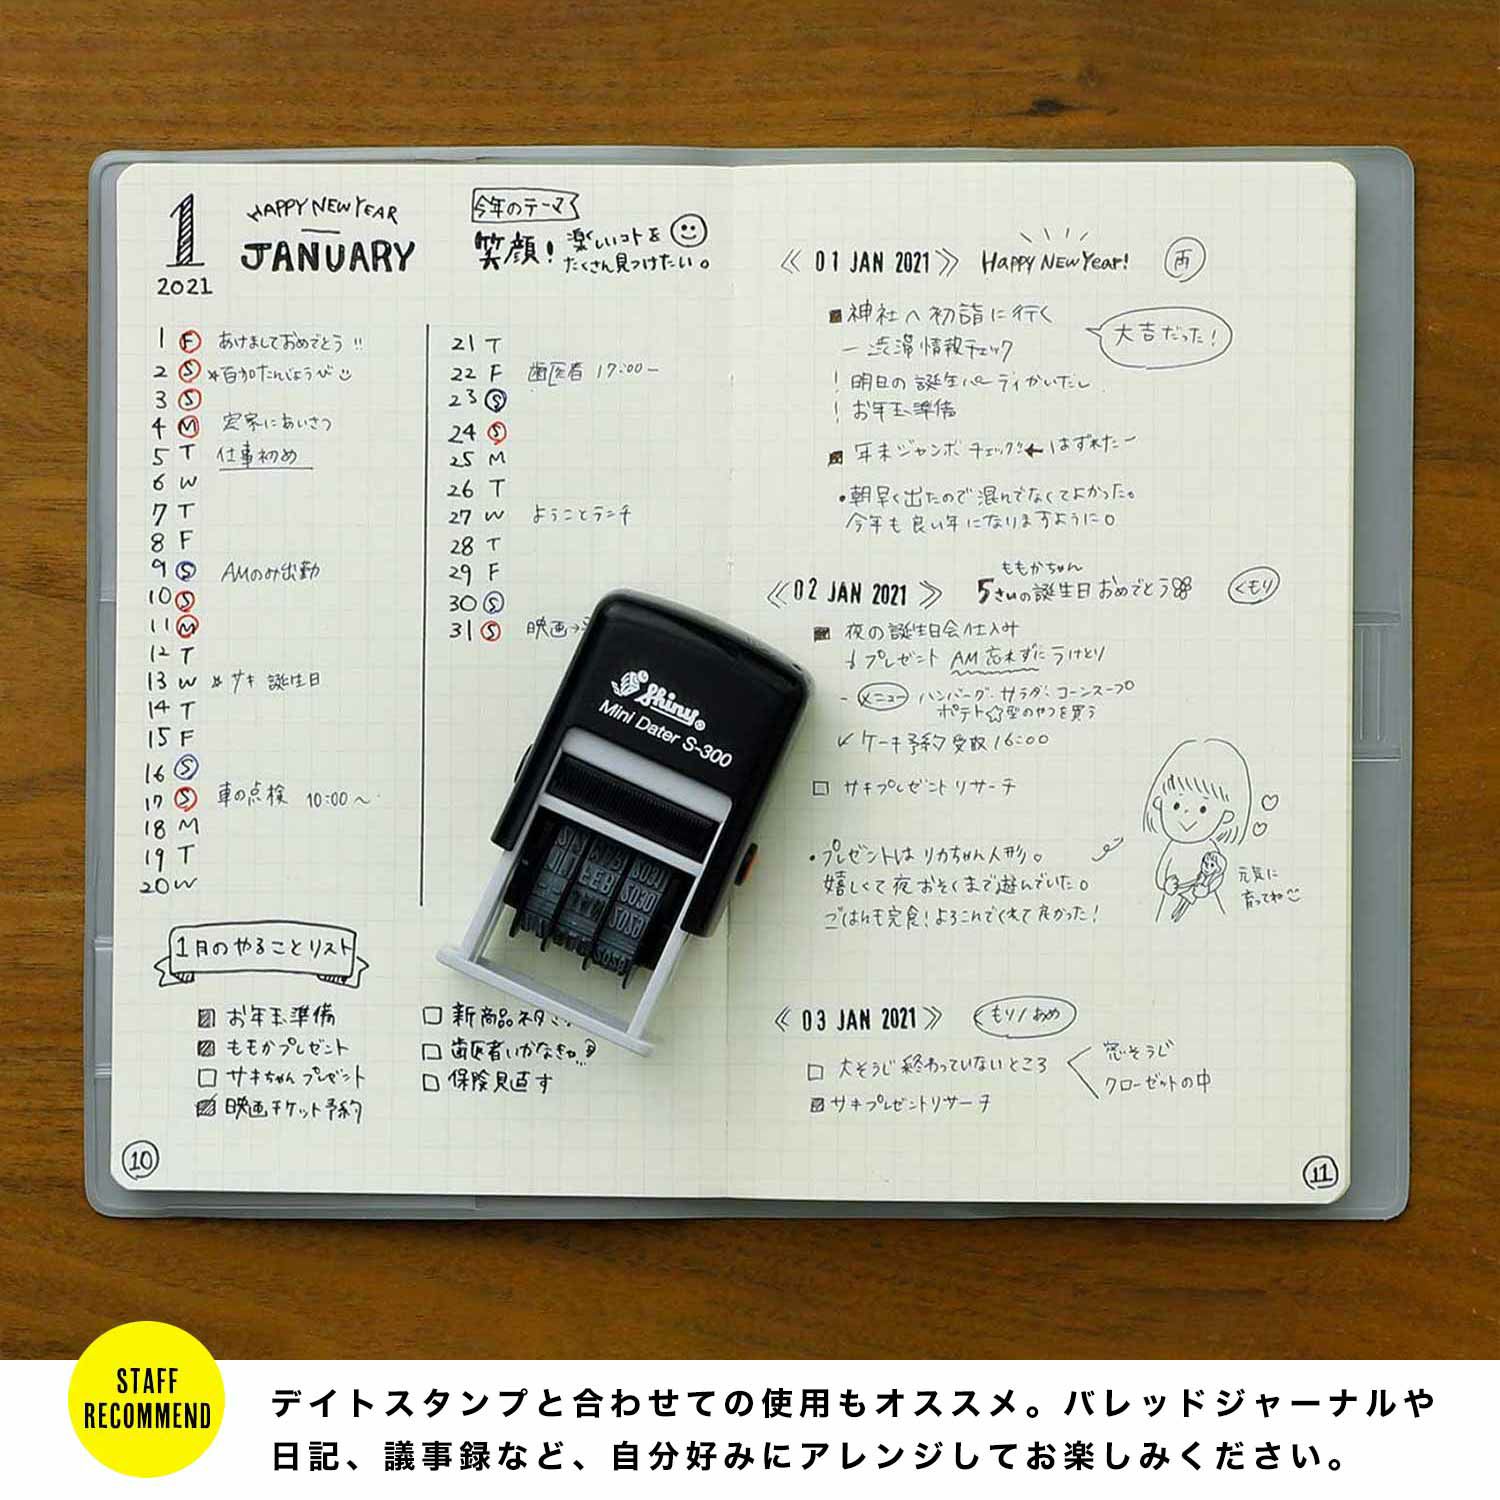 1
2021
HAPPY NEW YEAR
JANUARY
今年のテーマ
笑顔! 楽しいコトを
たくさん見つけたい。
1 F あけましておめでとう!!
2 S
3 S
4 M にあいさつ
5 T 仕事初め
6 W
7 T
8 F
9 S AMのみ出勤
10 S
11 M
12 T
13 W サキ 誕生日
14 T
15 F
16 S
17 S 車の点検 10:00〜
18 M
19 T
20 W
21 T
22 F 歯医者 17:00〜
23 S
24 S
25 M
26 T
27 W ようことランチ
28 T
29 F
30 S
31 S 映画→
1月のやることリスト
お年玉準備
ももかプレゼント
サキちゃんプレゼント
映画チケット予約
新商品ネタ
歯医者いかなきゃ
保険見直す
10
Shiny®
Mini Dater S-300
《 01 JAN 2021 》 HAPPY NEW YEAR! 雨
神社へ初詣に行く
大吉だった!
– 渋滞情報チェック
! 明日の誕生パーティかいだし
! お年玉準備
年末ジャンボチェック!! ← はずれたー
・朝早く出たので混んでなくてよかった。
今年も良い年になりますように。
ももかちゃん
《 02 JAN 2021 》 5さいの誕生日おめでとう くもり
夜の誕生日会仕込み
プレゼント AM忘れずにうけとり
- メニュー ハンバーグ・サラダ・コーンスープ
ポテト☆型のやつを買う
ケーキ予約受取16:00
サキプレゼントリサーチ
・プレゼントはリカちゃん人形。
嬉しくて夜おそくまで遊んでいた。
ごはんも完食!よろこんでくれて良かった!
元気に
育ってね
《 03 JAN 2021 》 くもり/あめ
大そうじ終わっていないところ
窓そうじ
クローゼットの中
サキプレゼントリサーチ
11
STAFF
RECOMMEND
デイトスタンプと合わせての使用もオススメ。バレッドジャーナルや
日記、議事録など、自分好みにアレンジしてお楽しみください。